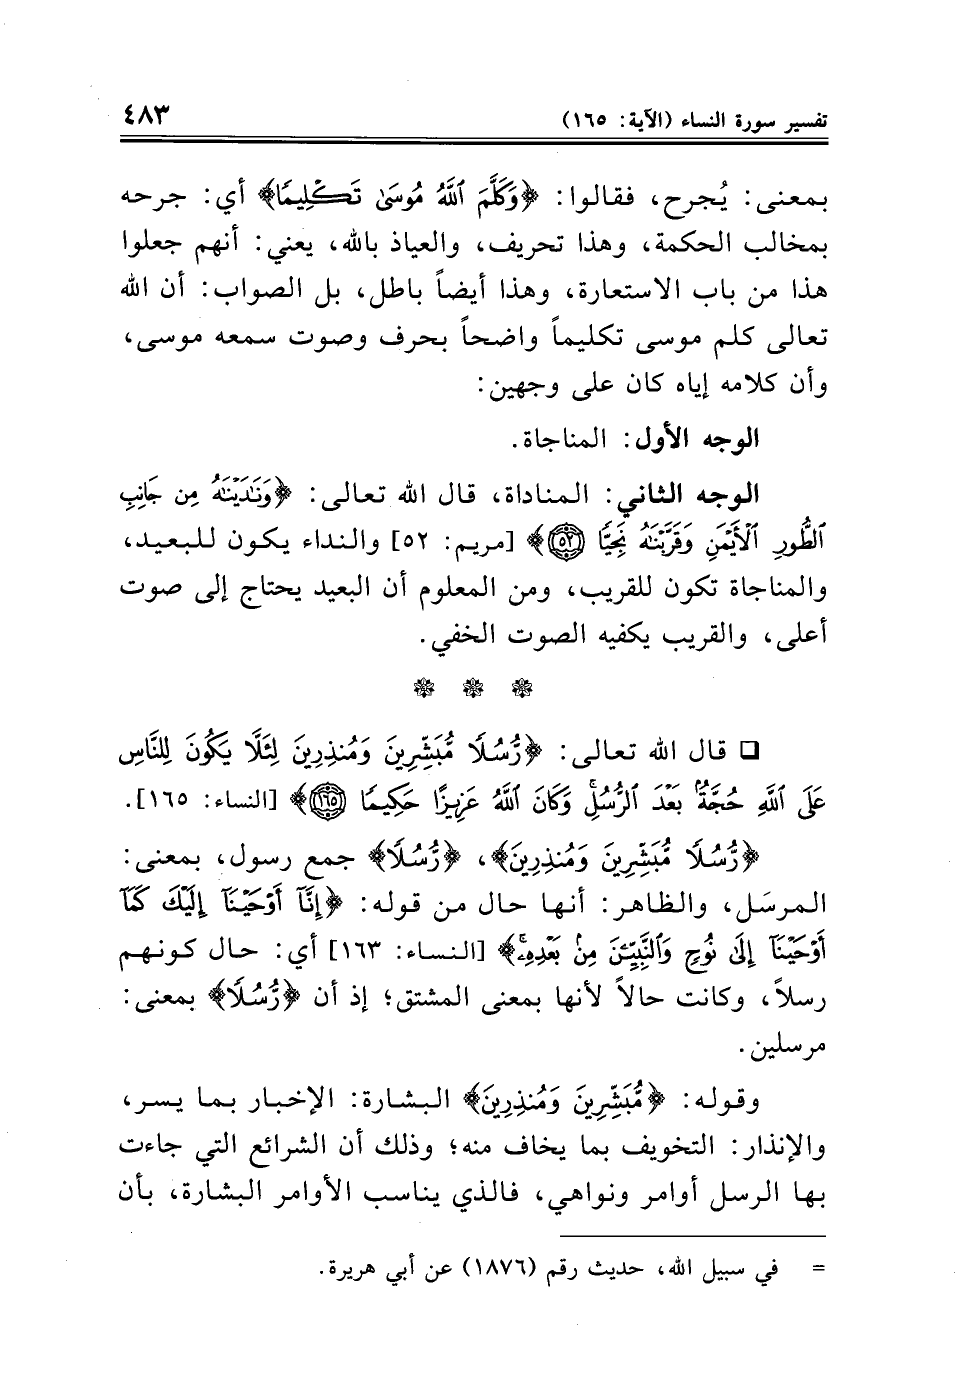 تفسير سورة النساء (الآية: ١٦٥) ٤٨٣
بمعنى: يُجرح، فقالوا: ﴿وَكَلَّمَ ٱللَّهُ مُوسَىٰ تَكْلِيمًا﴾ أي: جرحه
بمخالب الحكمة، وهذا تحريف، والعياذ بالله، يعني: أنهم جعلوا
هذا من باب الاستعارة، وهذا أيضاً باطل، بل الصواب: أن الله
تعالى كلم موسى تكليماً واضحاً بحرف وصوت سمعه موسى،
وأن كلامه إياه كان على وجهين:
الوجه الأول: المناجاة.
الوجه الثاني: المناداة، قال الله تعالى: ﴿وَنَٰدَيْنَٰهُ مِن جَانِبِ
ٱلطُّورِ ٱلْأَيْمَنِ وَقَرَّبْنَٰهُ نَجِيًّا ٥٢﴾ [مريم: ٥٢] والنداء يكون للبعيد،
والمناجاة تكون للقريب، ومن المعلوم أن البعيد يحتاج إلى صوت
أعلى، والقريب يكفيه الصوت الخفي.
❁ ❁ ❁
❑ قال الله تعالى: ﴿رُّسُلًا مُّبَشِّرِينَ وَمُنذِرِينَ لِئَلَّا يَكُونَ لِلنَّاسِ
عَلَى ٱللَّهِ حُجَّةٌۢ بَعْدَ ٱلرُّسُلِ ۚ وَكَانَ ٱللَّهُ عَزِيزًا حَكِيمًا ١٦٥﴾ [النساء: ١٦٥].
﴿رُّسُلًا مُّبَشِّرِينَ وَمُنذِرِينَ﴾، ﴿رُّسُلًا﴾ جمع رسول، بمعنى:
المرسَل، والظاهر: أنها حال من قوله: ﴿إِنَّآ أَوْحَيْنَآ إِلَيْكَ كَمَآ
أَوْحَيْنَآ إِلَىٰ نُوحٍ وَٱلنَّبِيِّـۧنَ مِنۢ بَعْدِهِۦ ۚ﴾ [النساء: ١٦٣] أي: حال كونهم
رسلاً، وكانت حالاً لأنها بمعنى المشتق؛ إذ أن ﴿رُّسُلًا﴾ بمعنى:
مرسلين.
وقوله: ﴿مُّبَشِّرِينَ وَمُنذِرِينَ﴾ البشارة: الإخبار بما يسر،
والإنذار: التخويف بما يخاف منه؛ وذلك أن الشرائع التي جاءت
بها الرسل أوامر ونواهي، فالذي يناسب الأوامر البشارة، بأن
= في سبيل الله، حديث رقم (١٨٧٦) عن أبي هريرة.